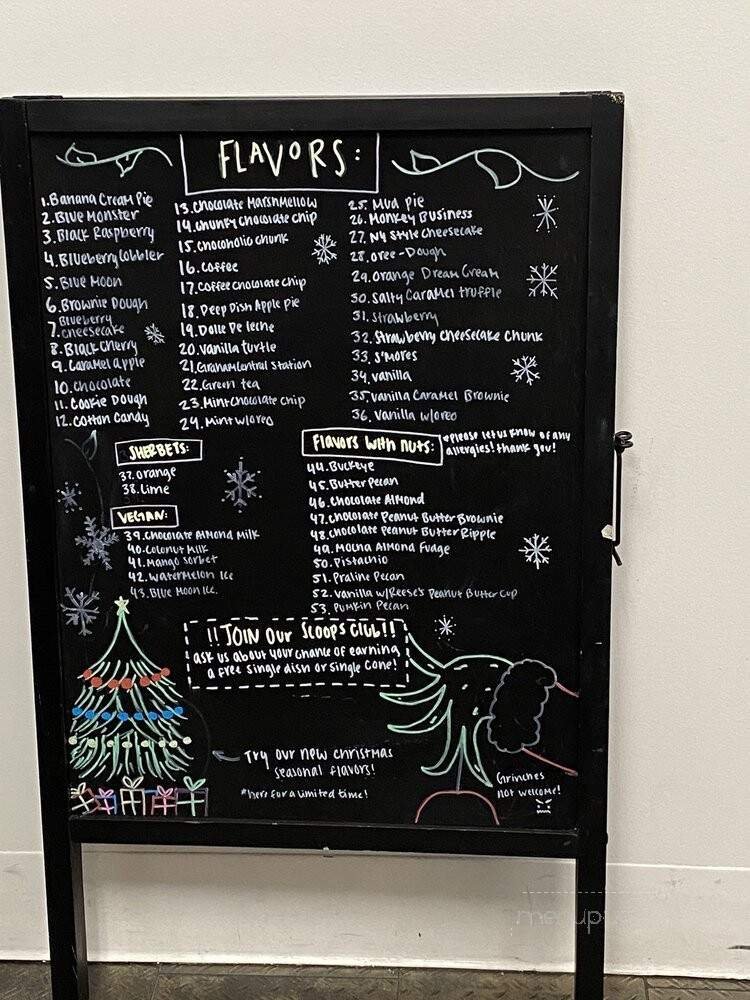 FLAVORS:
1. Banana Cream Pie
2. Blue Monster
3. Black Raspberry
4. Blueberry Cobbler
5. Blue Moon
6. Brownie Dough
7. Blueberry
cheesecake
8. Black Cherry
9. Caramel Apple
10. Chocolate
11. Cookie Dough
12. Cotton Candy
13. Chocolate Marshmellow
14. Chunky Chocolate Chip
15. Chocoholic Chunk
16. Coffee
17. Coffee Chocolate Chip
18. Deep Dish Apple Pie
19. Dolle De leche
20. Vanilla Turtle
21. Graham Central Station
22. Green tea
23. Mint Chocolate Chip
24. Mint w/oreo
25. Mud Pie
26. Monkey Business
27. NY Style Cheesecake
28. Oree-Dough
29. Orange Dream Cream
30. Salty Caramel truffle
31. Strawberry
32. Strawberry Cheesecake Chunk
33. S'mores
34. Vanilla
35. Vanilla Caramel Brownie
36. Vanilla w/oreo
SHERBETS:
37. Orange
38. Lime
VEGAN:
39. Chocolate Almond Milk
40. Coconut Milk
41. Mango Sorbet
42. Watermelon Ice
43. Blue Moon Ice.
Flavors with nuts:
*Please let us know of any
allergies! thank you!
44. Buckeye
45. Butter Pecan
46. Chocolate Almond
47. Chocolate Peanut Butter Brownie
48. Chocolate Peanut Butter Ripple
49. Mocha Almond Fudge
50. Pistachio
51. Praline Pecan
52. Vanilla w/Reese's Peanut Butter Cup
53. Pumkin Pecan
!! JOIN Our Scoops Club!!
ask us about your chance of earning
a free single dish or single cone!
Try our new christmas
seasonal flavors!
*here for a limited time!
Grinches
not welcome!